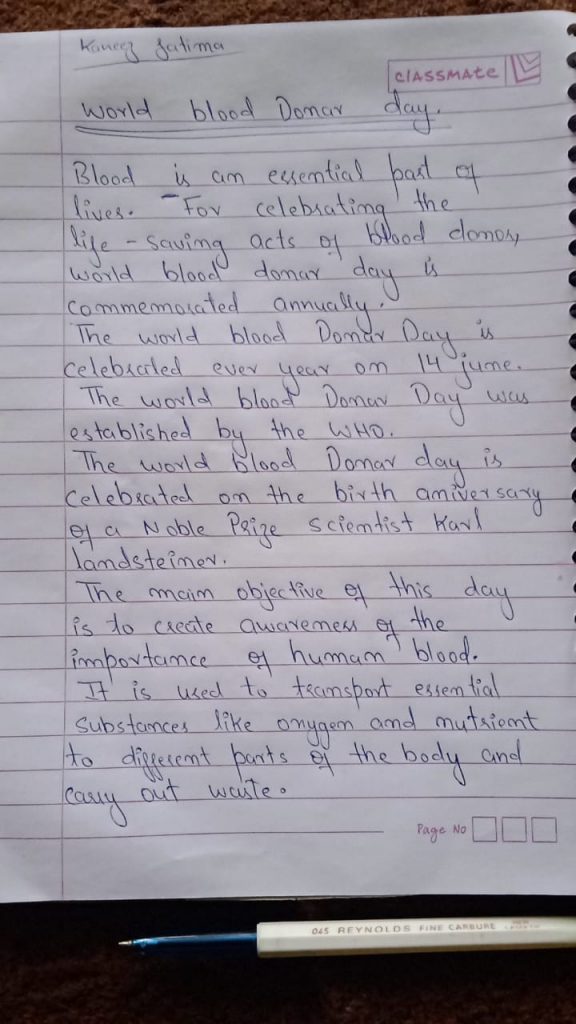 Kaneez fatima
classmate
World blood Donar day.
Blood is an essential part of
lives. For celebrating the
life-saving acts of blood donos,
world blood donar day is
commemorated annually.
The world blood Donar Day is
celebrated ever year on 14 june.
The world blood Donar Day was
established by the WHO.
The world blood Donar day is
celebrated on the birth aniversary
of a Noble Prize scientist Karl
landsteiner.
The main objective of this day
is to create awareness of the
importance of human blood.
It is used to transport essential
substances like onygen and nutrient
to different parts of the body and
carry out waste.
Page No
045 REYNOLDS FINE CARBURE